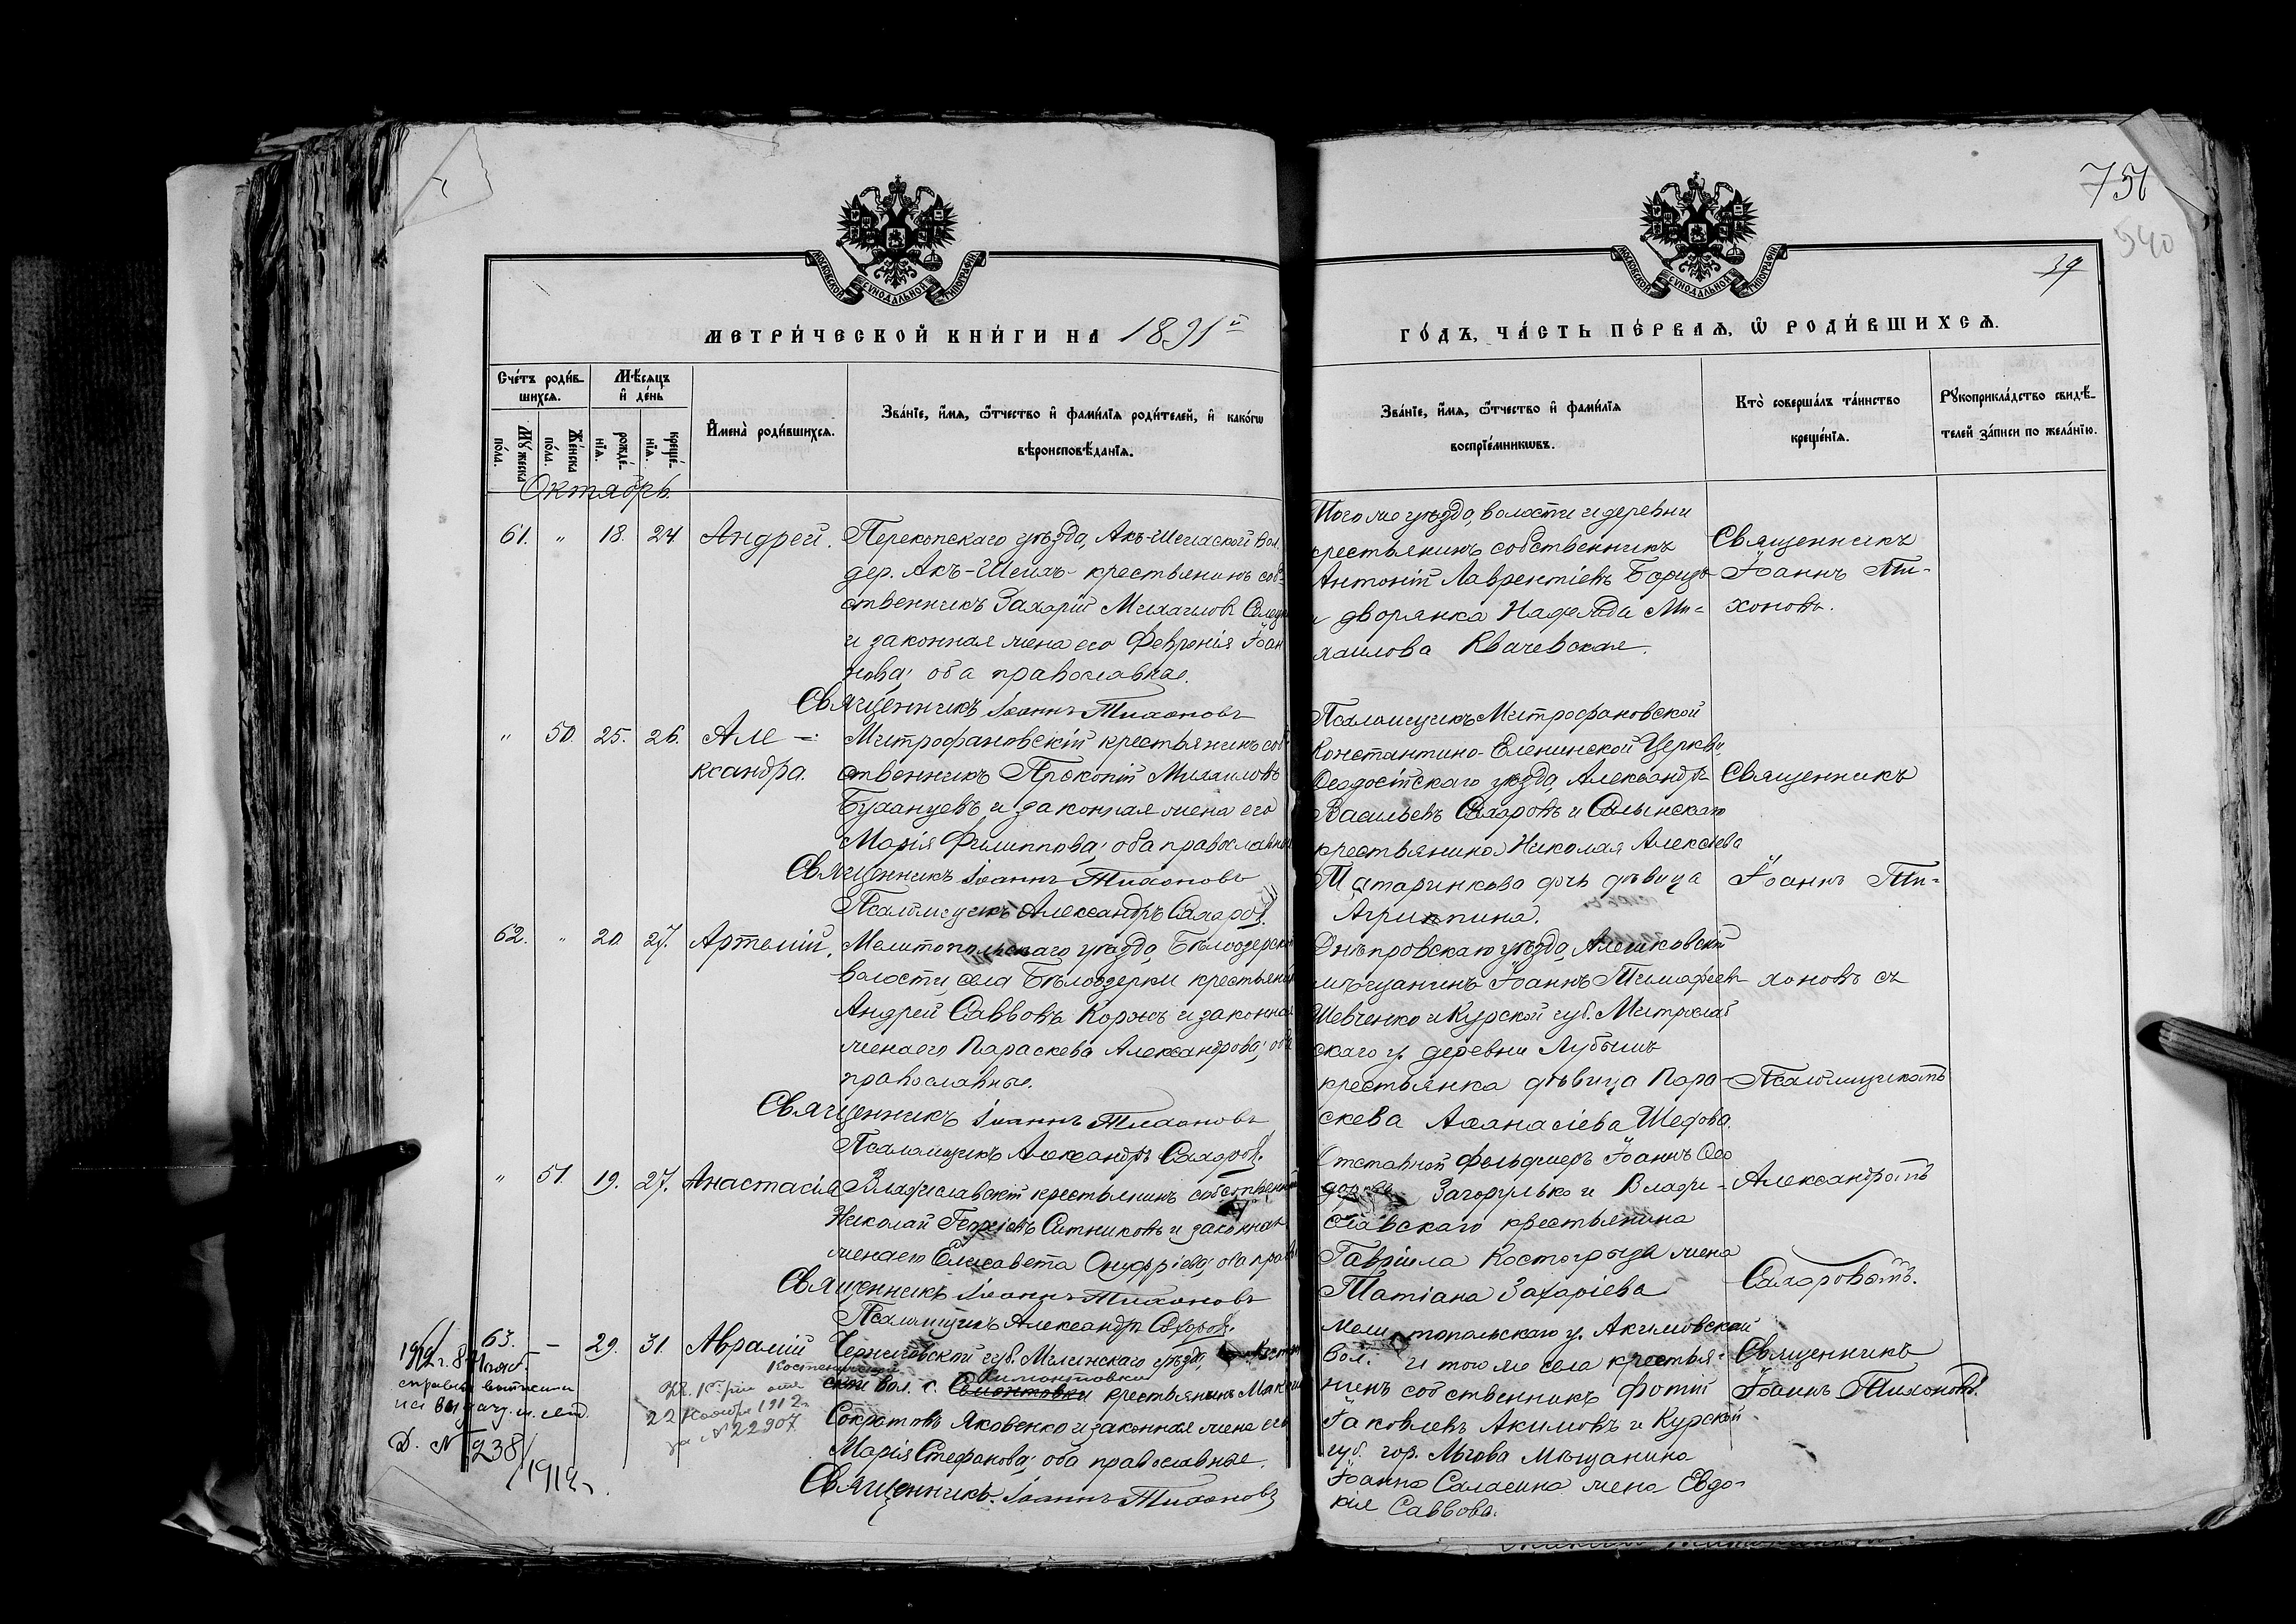 751
540
39
МОСКОВСКОЙ СѴНОДАЛЬНОЙ ТИПОГРАФІИ
МОСКОВСКОЙ СѴНОДАЛЬНОЙ ТИПОГРАФІИ
МЕТРИ́ЧЕСКОЙ КНИ́ГИ НА 1891й
ГО́ДЪ, ЧА́СТЬ ПЕ́РВАѦ, Ѿ РОДИ́ВШИХСѦ.
Сче́тъ роди́в-
шихсѧ.
Мѣ́сѧцъ
и де́нь
Мꙋжеска по́ла.
Же́нска по́ла.
рожде́-
нїѧ.
креще́-
нїѧ.
Имена̀ роди́вшихсѧ.
Зва́нїе, и́мѧ, ѻ́тчество и фами́лїѧ роди́телей, и како́гѡ
вѣроисповѣ́данїѧ.
Зва́нїе, и́мѧ, ѻ́тчество и фами́лїѧ
воспрїе́мникѡвъ.
Кто̀ соверша́лъ та́инство
креще́нїѧ.
Рꙋкоприкла́дство свидѣ́-
телей за́писи по жела́нїю.
Октябрь.
61. " 18. 24 Андрей. Перекопскаго уѣзда, Акъ-Шеихской Вол.
дер. Акъ-Шеихъ крестьянинъ соб-
ственникъ Захарій Михаиловъ
и законная жена его Феврония Іоан
нова; оба православные.
Священникъ Іоаннъ Тихоновъ
Того же уѣзда, волости и деревни
крестьянинъ собственникъ
Антоній Лаврентіевъ
и дворянка Надежда Ми-
хаилова Квачевская.
Священникъ
Іоаннъ Ти-
хоновъ.
" 50. 25. 26. Але-
ксандра.
Митрофановскій крестьянинъ соб
ственникъ Прокопій Михаиловъ
Буханцевъ и законная жена его
Марія Филиппова; оба православные
Священникъ Іоаннъ Тихоновъ
Псаломщикъ Александръ Сахаровъ.
Псаломщикъ Митрофановской
Константино-Еленинской Церкви,
Ѳеодосійскаго уѣзда, Александръ
Васильевъ Сахаровъ и Салынскаго
крестьянина Николая Алексѣева
Татаринкова дочь дѣвица
Агриппина.
Священникъ
Іоаннъ Ти-
62. " 20 27. Артемій. Мелитопольскаго уѣзда, Бѣлозерской
волости, села Бѣлозерки крестьянинъ
Андрей Саввовъ Коржъ и законная
жена его Параскева Александрова; оба
православные.
Священникъ Іоаннъ Тихоновъ
Псаломщикъ Александръ Сахаровъ.
Днѣпровскаго уѣзда, Алешковскій
мѣщанинъ Іоаннъ Тимофеев
Шевченко и Курской губ.
скаго у. деревни
крестьянка дѣвица Пара-
скева Аѳанасіева Шедова.
хоновъ съ
Псаломщикомъ
" 51. 19. 27. Анастасія Владиславскій крестьянинъ собственникъ
Николай Георгіевъ Ситниковъ и законная
жена его Елисавета Онуфріева; оба прав
Священникъ Іоаннъ Тихоновъ
Псаломщикъ Александръ Сахаровъ.
Отставной фельдшеръ Іоаннъ Ѳео
доровъ Загорулько и Влади-
славскаго крестьянина
Гавріила Костогрыза жена
Татіана Захаріева
Александромъ
Сахаровомъ.
63. – 29. 31. Аврамій Черниговской губ. Мглинскаго уѣзда,
Костеничской
ской вол. с. Симонтовки крестьянинъ
Сократовъ Яковенко и законная жена его
Марія Стефанова; оба православные.
Священникъ Іоаннъ Тихоновъ
Мелитопольскаго у. Акимовской
вол. и того же села крестья-
нинъ собственникъ Фотій
Іаковлевъ Акимовъ и Курской
губ. гор. Льгова Мѣщанина
Іоанна Саласина жена Евдо-
кія Саввова.
Священникъ
Іоаннъ Тихоновъ.
22 Ноября 1912г.
за № 22907
Д. № 238
1912г.